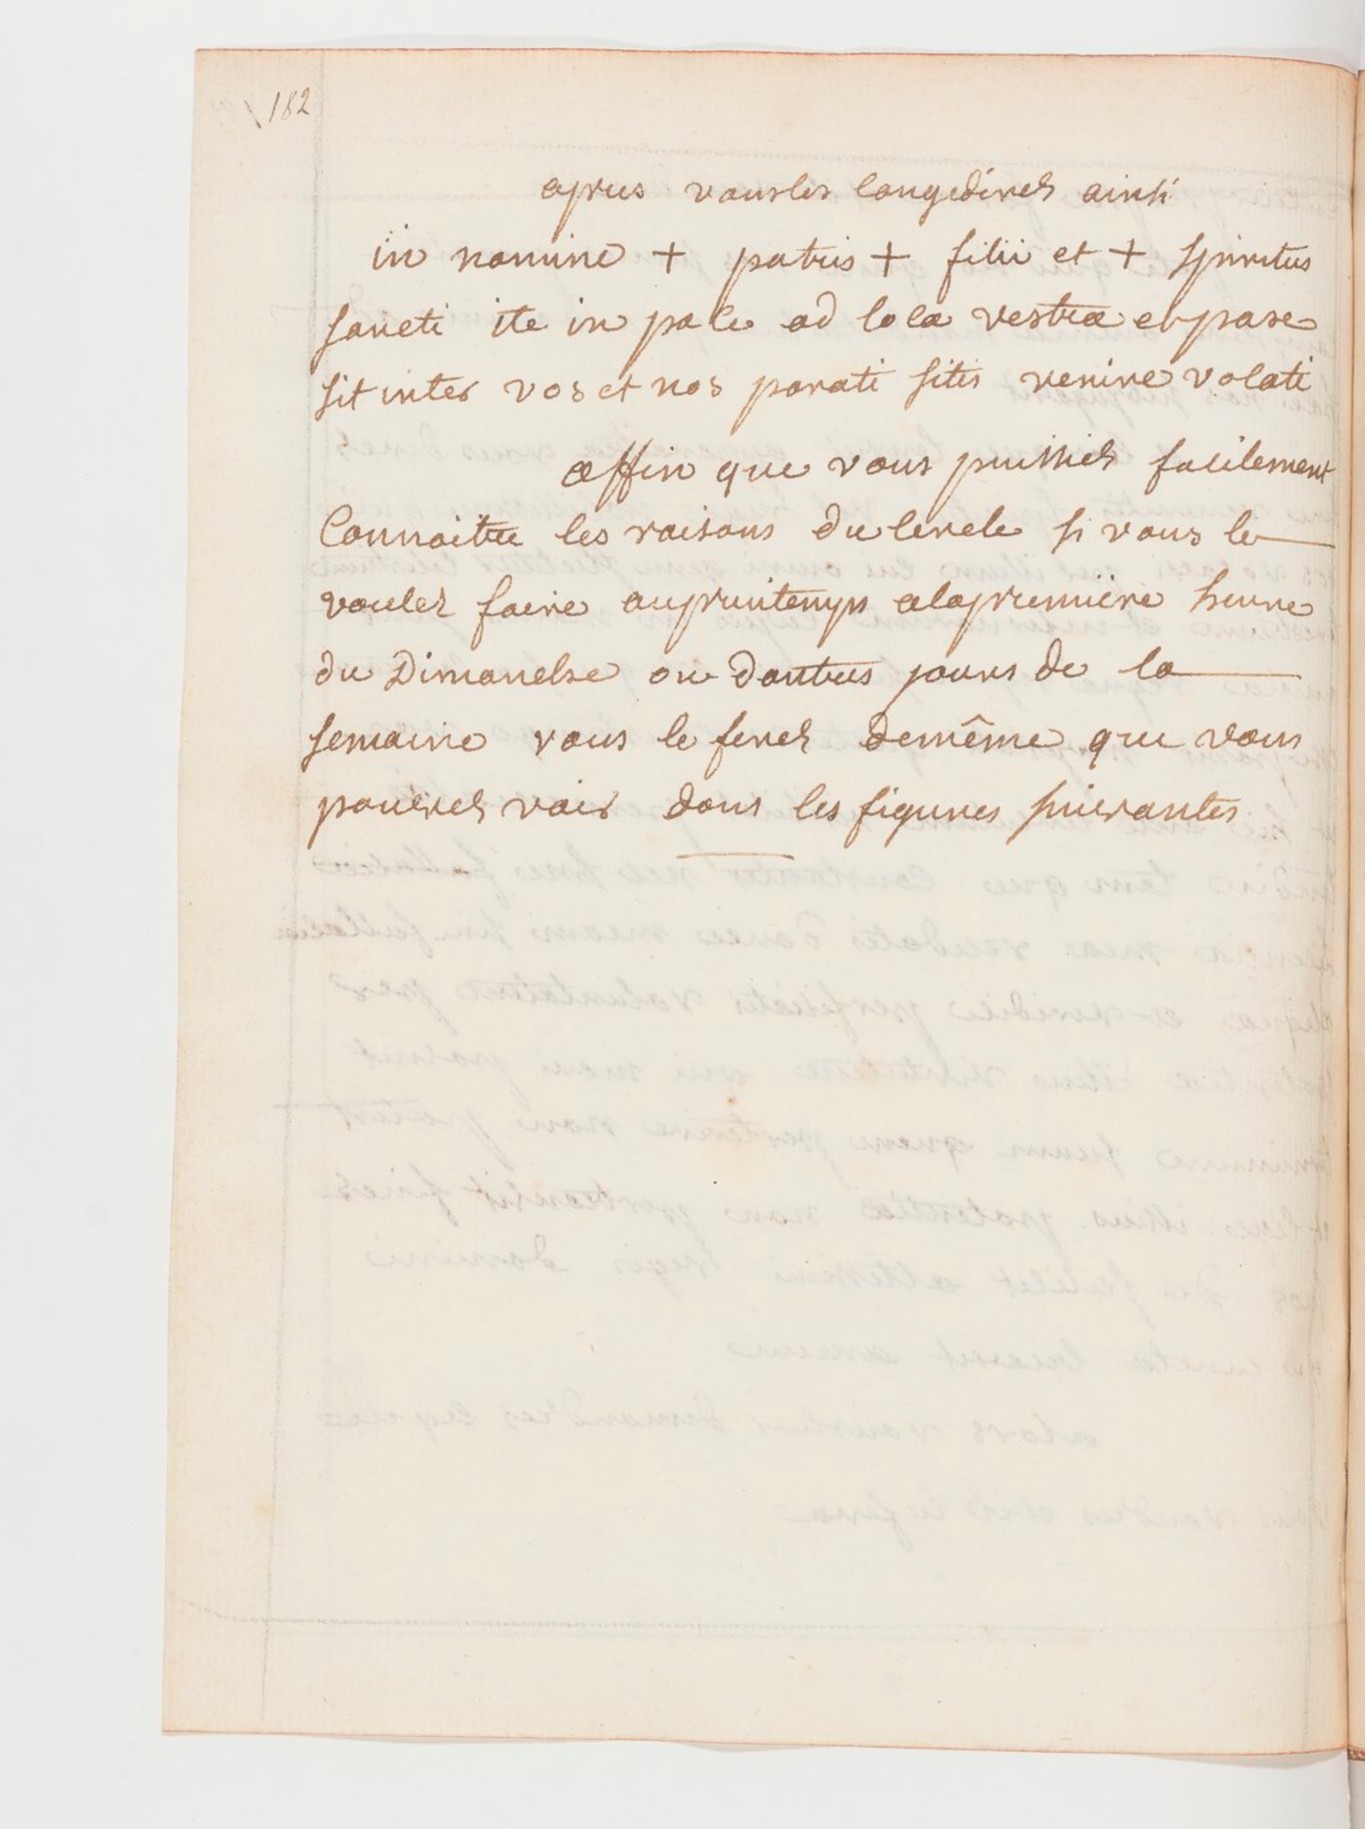 182
apres vousles congedirés ainsi
in nomine + patris + filii et + spiritus
sancti ite in pace ad loca vestra et pase
sit inter vos et nos parati sitis venire volati
affin que vous puissiés facilement
Connoitre les raisons du Cercle si vous le
voulez faire auprintemps alapremiere heure
du Dimanche ou Dautres jours de la
semaine vous le ferés demême que vous
pouerés voir dans les figures suivantes